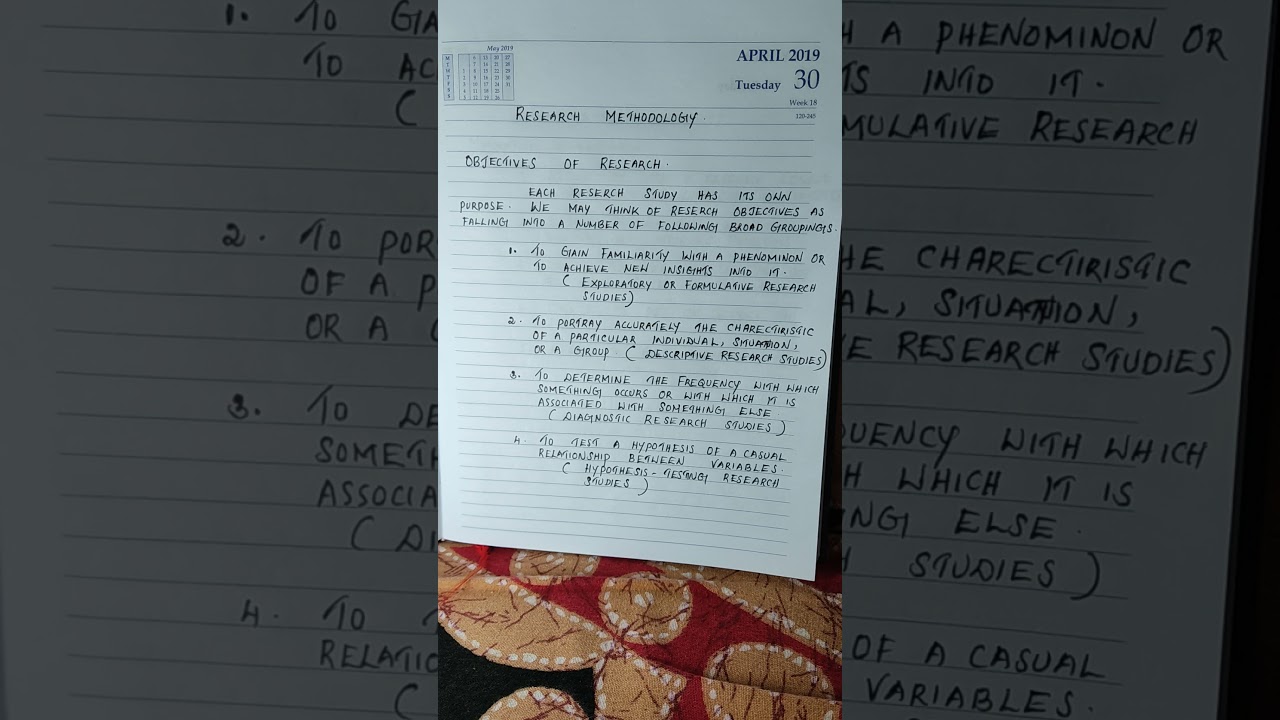 May 2019
APRIL 2019
Tuesday 30
Week 18
120-245
RESEARCH METHODOLOGY.
OBJECTIVES OF RESEARCH.
EACH RESERCH STUDY HAS ITS OWN
PURPOSE. WE MAY THINK OF RESERCH OBJECTIVES AS
FALLING INTO A NUMBER OF FOLLOWING BROAD GROUPINGS.
1. TO GAIN FAMILIARITY WITH A PHENOMINON OR
TO ACHIEVE NEW INSIGHTS INTO IT.
( EXPLORATORY OR FORMULATIVE RESEARCH
STUDIES)
2. TO PORTRAY ACCURATELY THE CHARECTIRISTIC
OF A PARTICULAR INDIVIDUAL, SITUATION,
OR A GROUP. ( DESCRIPTIVE RESEARCH STUDIES)
3. TO DETERMINE THE FREQUENCY WITH WHICH
SOMETHING OCCURS OR WITH WHICH IT IS
ASSOCIATED WITH SOMETHING ELSE
( DIAGNOSTIC RESEARCH STUDIES )
4. TO TEST A HYPOTHESIS OF A CASUAL
RELATIONSHIP BETWEEN VARIABLES.
( HYPOTHESIS-TESTING RESEARCH
STUDIES )